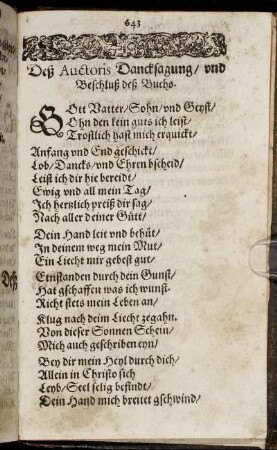 643
Deß Auctoris Dancksagung/ vnd
Beschluß deß Buchs.
GOtt Vatter/ Sohn/ vnd Geyst/
Ohn den kein guts ich leist/
Tröstlich hast mich erquickt/
Anfang vnd End geschickt/
Lob/ Dancks/ vnd Ehren bscheid/
Leist ich dir hie bereidt/
Ewig vnd all mein Tag/
Ich hertzlich preiß dir sag/
Nach aller deiner Gütt/
Dein Hand leit vnd behüt/
In deinem weg mein Mut/
Ein Liecht mir gebest gut/
Entstanden durch dein Gunst/
Hat gschaffen was ich wunst.
Richt stets mein Leben an/
Klug nach deim Liecht zegahn.
Von dieser Sonnen Schein/
Mich auch geschriben eyn/
Bey dir mein Heyl durch dich/
Allein in Christo sich
Leyb/ Seel selig befindt/
Dein Hand mich breitet gschwind/